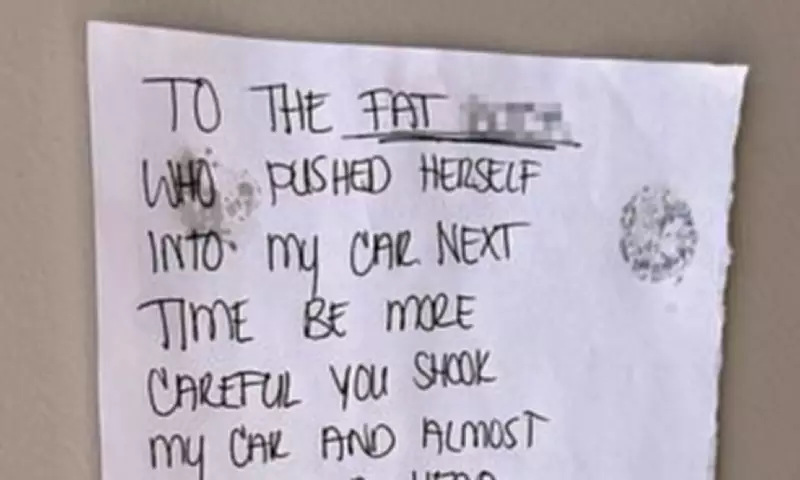 TO THE FAT
WHO PUSHED HERSELF
INTO MY CAR NEXT
TIME BE MORE
CAREFUL YOU SHOOK
MY CAR AND ALMOST